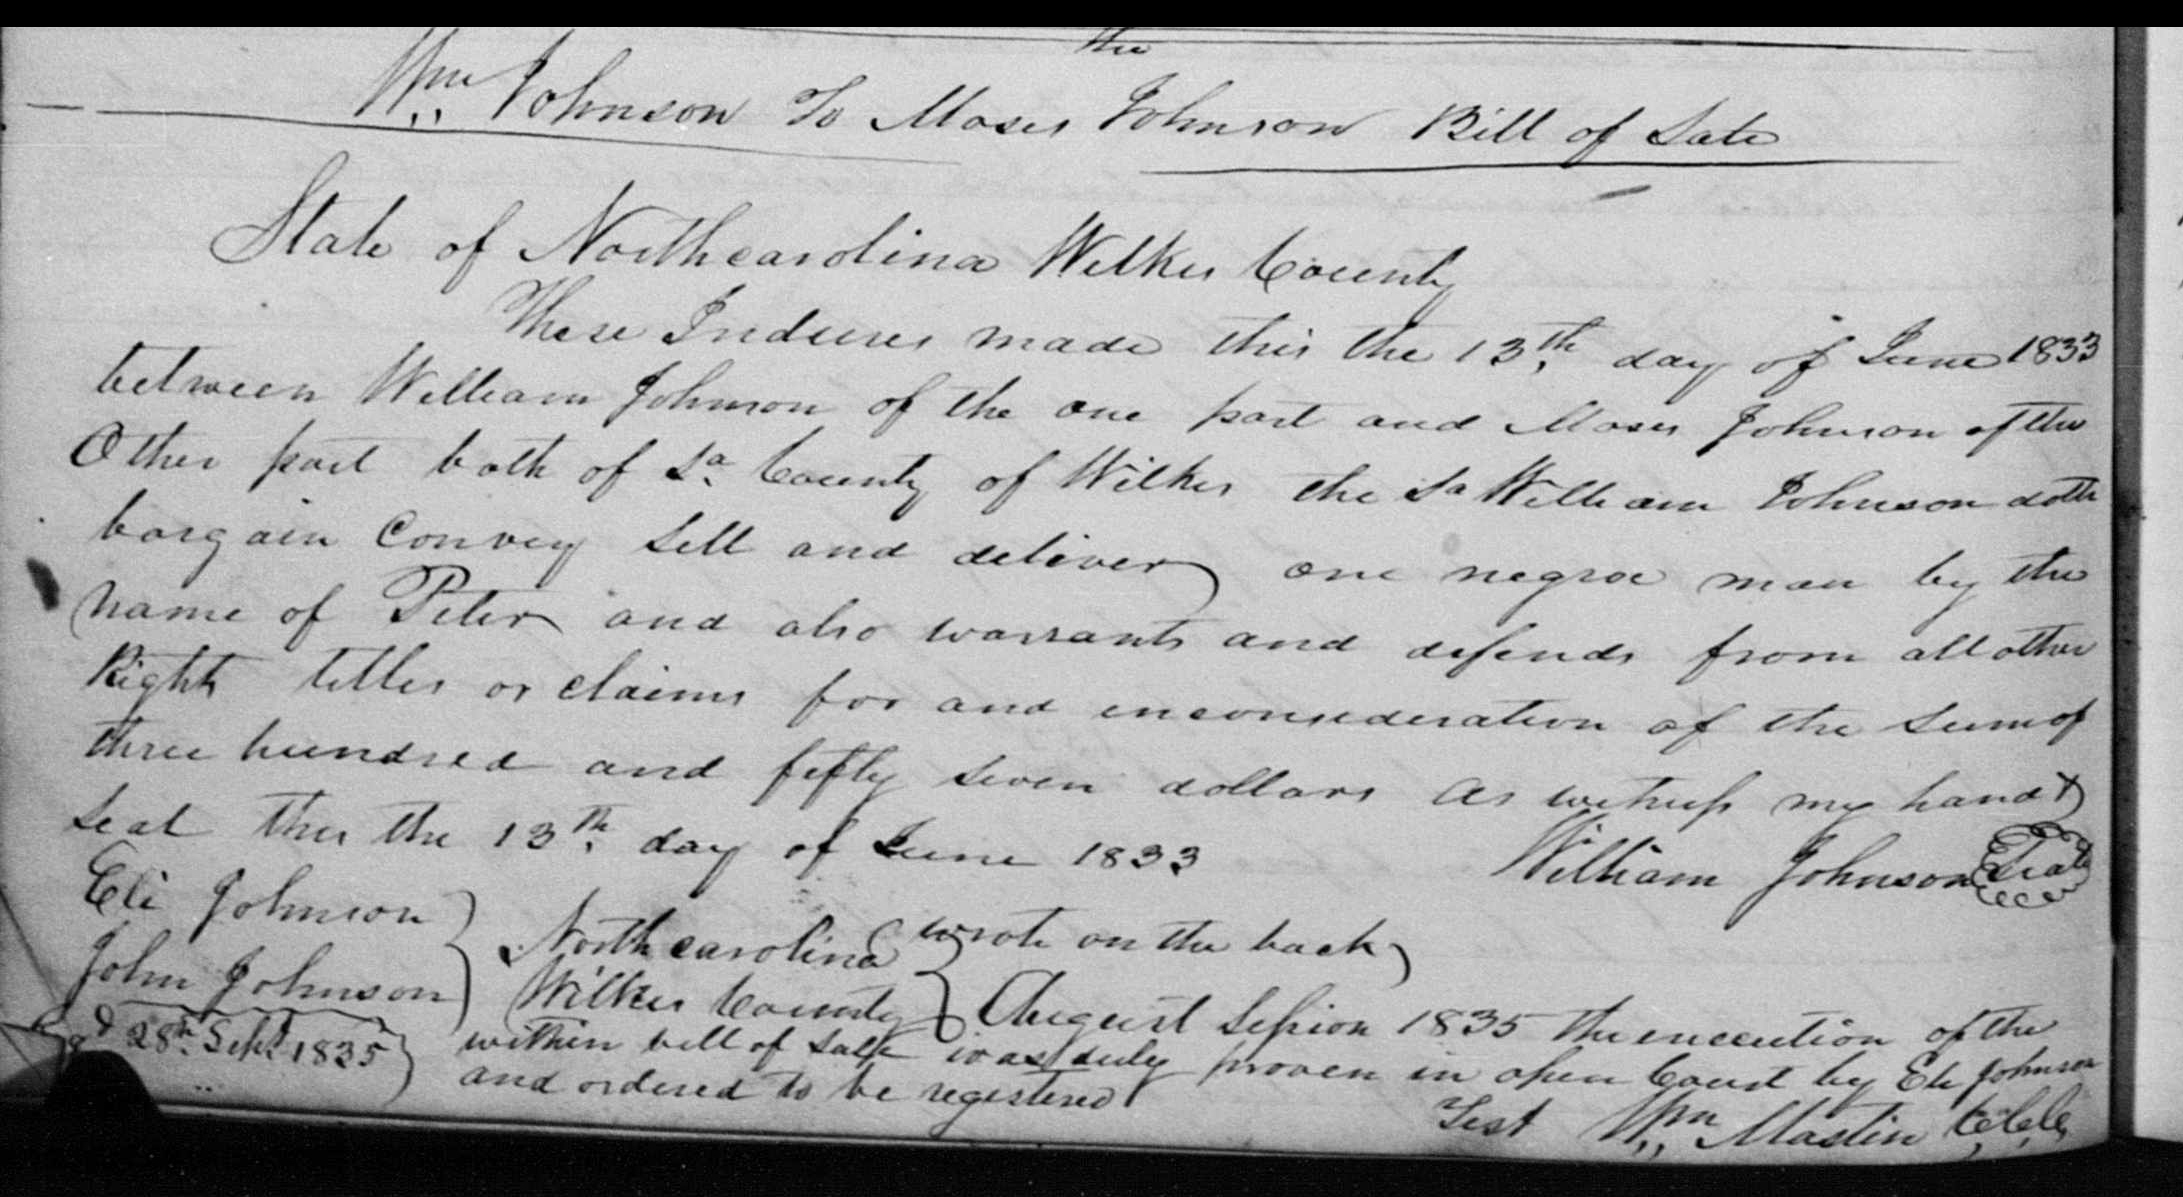 the
Wm Johnson To Moses Johnson Bill of Sale
State of Northcarolina Wilkes County
These Indeures made this the 13th day of June 1833
between William Johnson of the one part and Moses Johnson of the
Other part both of Sd County of Wilkes the Sd William Johnson doth
bargain Convey Sell and deliver one negroe man by the
name of Peter and also warrants and defends from all other
Rights titles or claims for and inconsideration of the Sum of
three hundred and fifty seven dollars As witness my hand &
Seal this the 13th day of June 1833
William Johnson Seal
Eli Johnson
John Johnson
Northcarolina wrote on the back
Wilkes County August Session 1835 The execution of the
within bill of Sale was duly proven in open Court by Eli Johnson
and ordered to be registered
28th Sept 1835
Test Wm Mastin